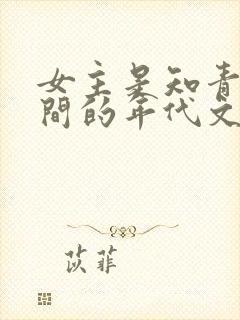 女主是知青
間的年代文
苡菲